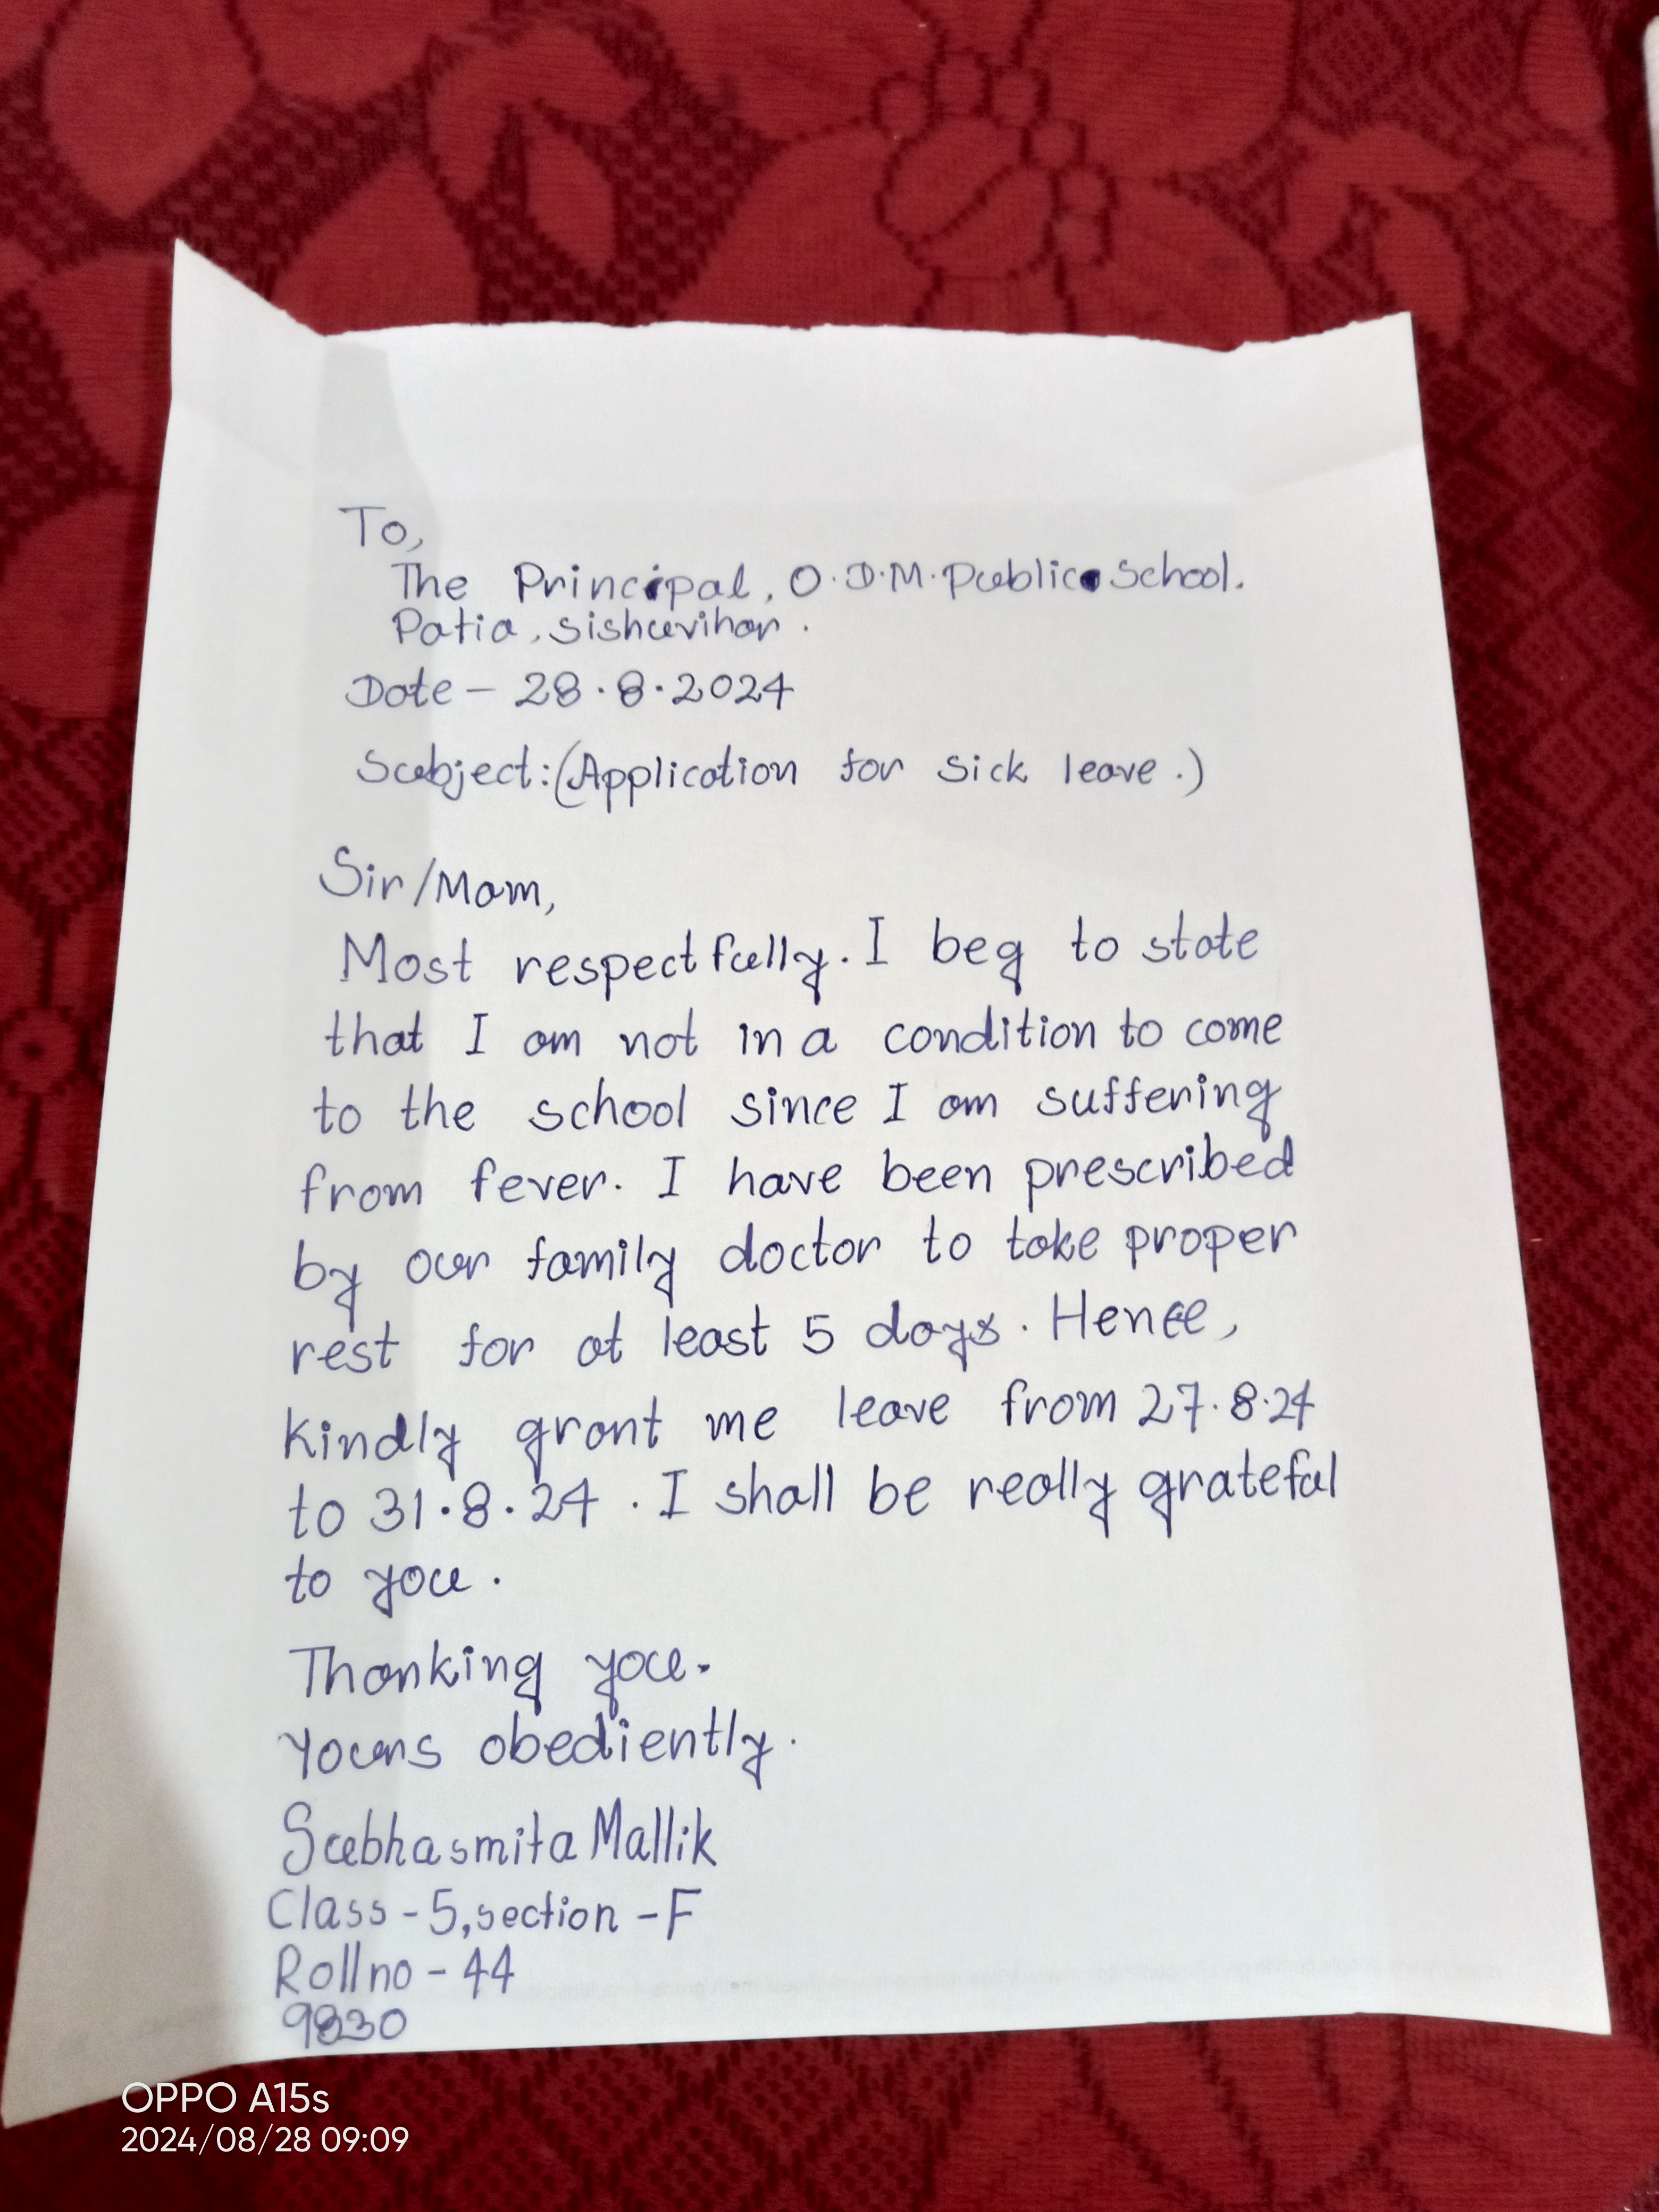 To,
The Principal, O.D.M. Public School.
Patia, Sishuvihar.
Date - 28.8.2024
Subject:(Application for sick leave.)
Sir/Mam,
Most respectfully. I beg to state
that I am not in a condition to come
to the school since I am suffering
from fever. I have been prescribed
by our family doctor to take proper
rest for at least 5 days. Hence,
kindly grant me leave from 27.8.24
to 31.8.24. I shall be really grateful
to you.
Thanking you.
Yours obediently.
Subhasmita Mallik
Class - 5, section - F
Roll no - 44
OPPO A15s
2024/08/28 09:09